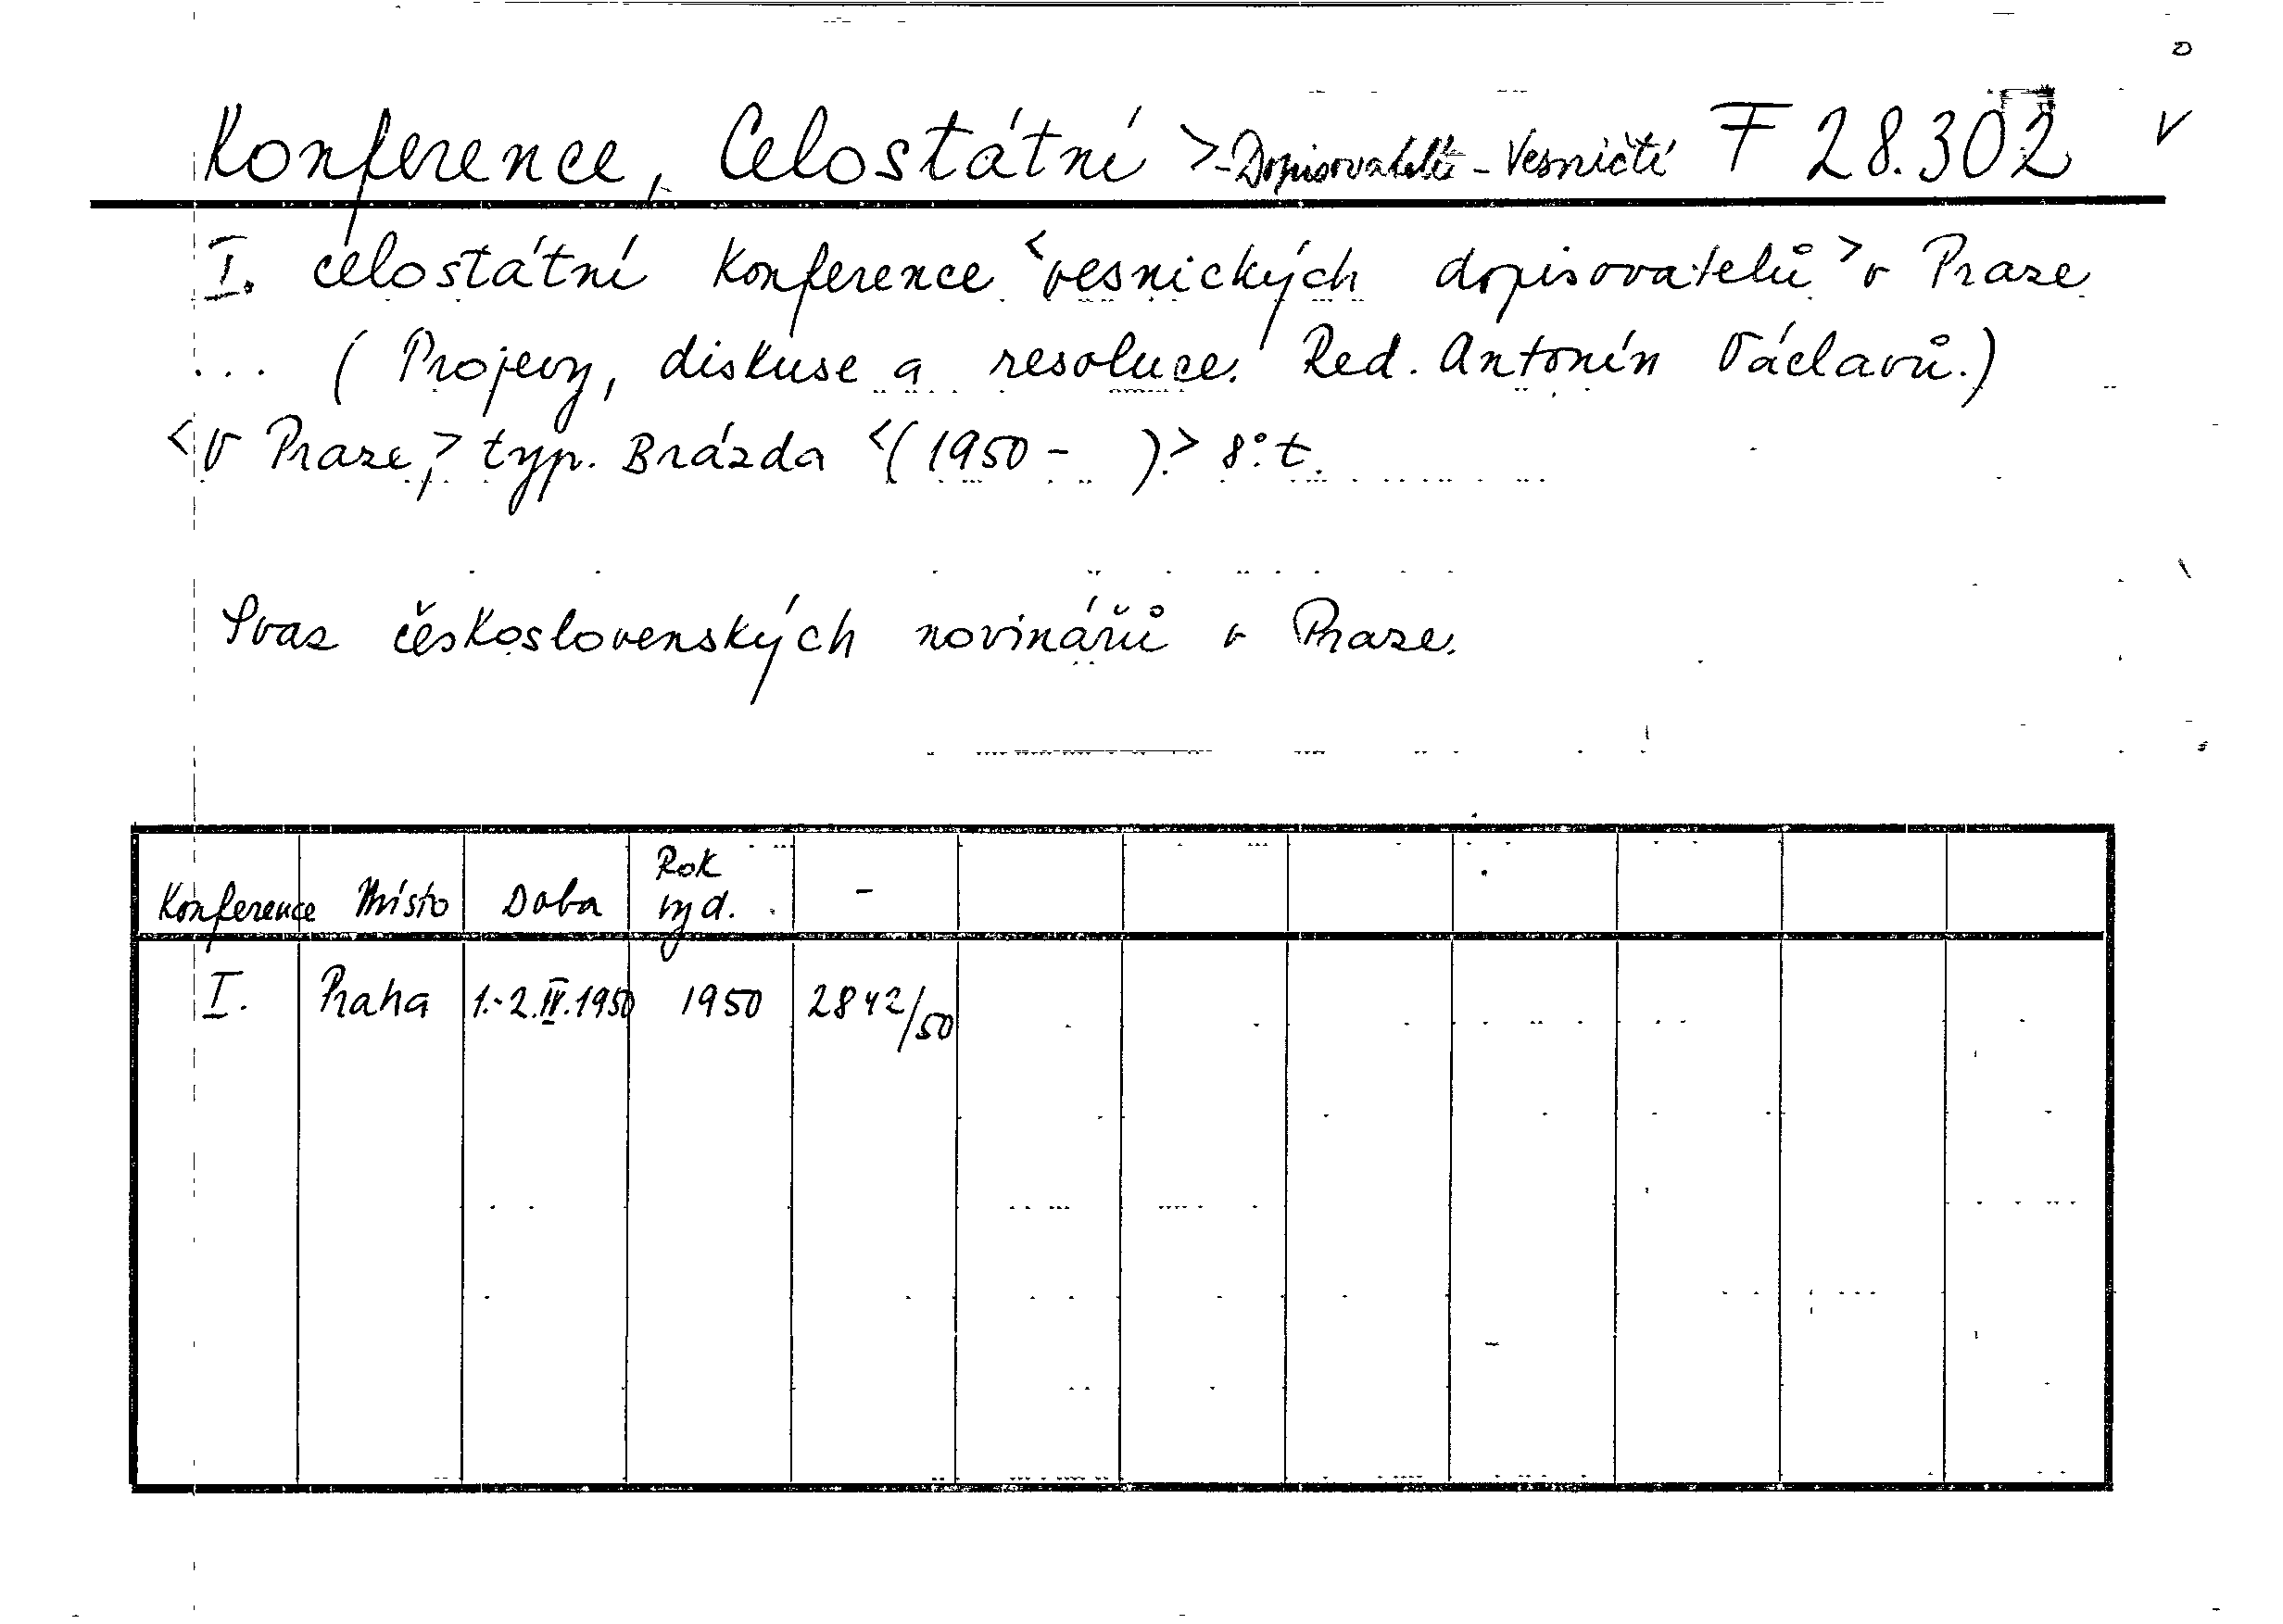 Konference, Celostátní >-Dopisovatelé-Vesničtí F 28.302 V
I. celostátní konference <vesnických dopisovatelů> v Praze
... (Projevy, diskuse a resoluce. Red. Antonín Václavů.)
<V Praze,> typ. Brázda <(1950- ).> 8°. t.
Svaz československých novinářů v Praze.
Konference Místo Doba Rok vyd. -
I. Praha 1.-2.IV.1950 1950 2842/50